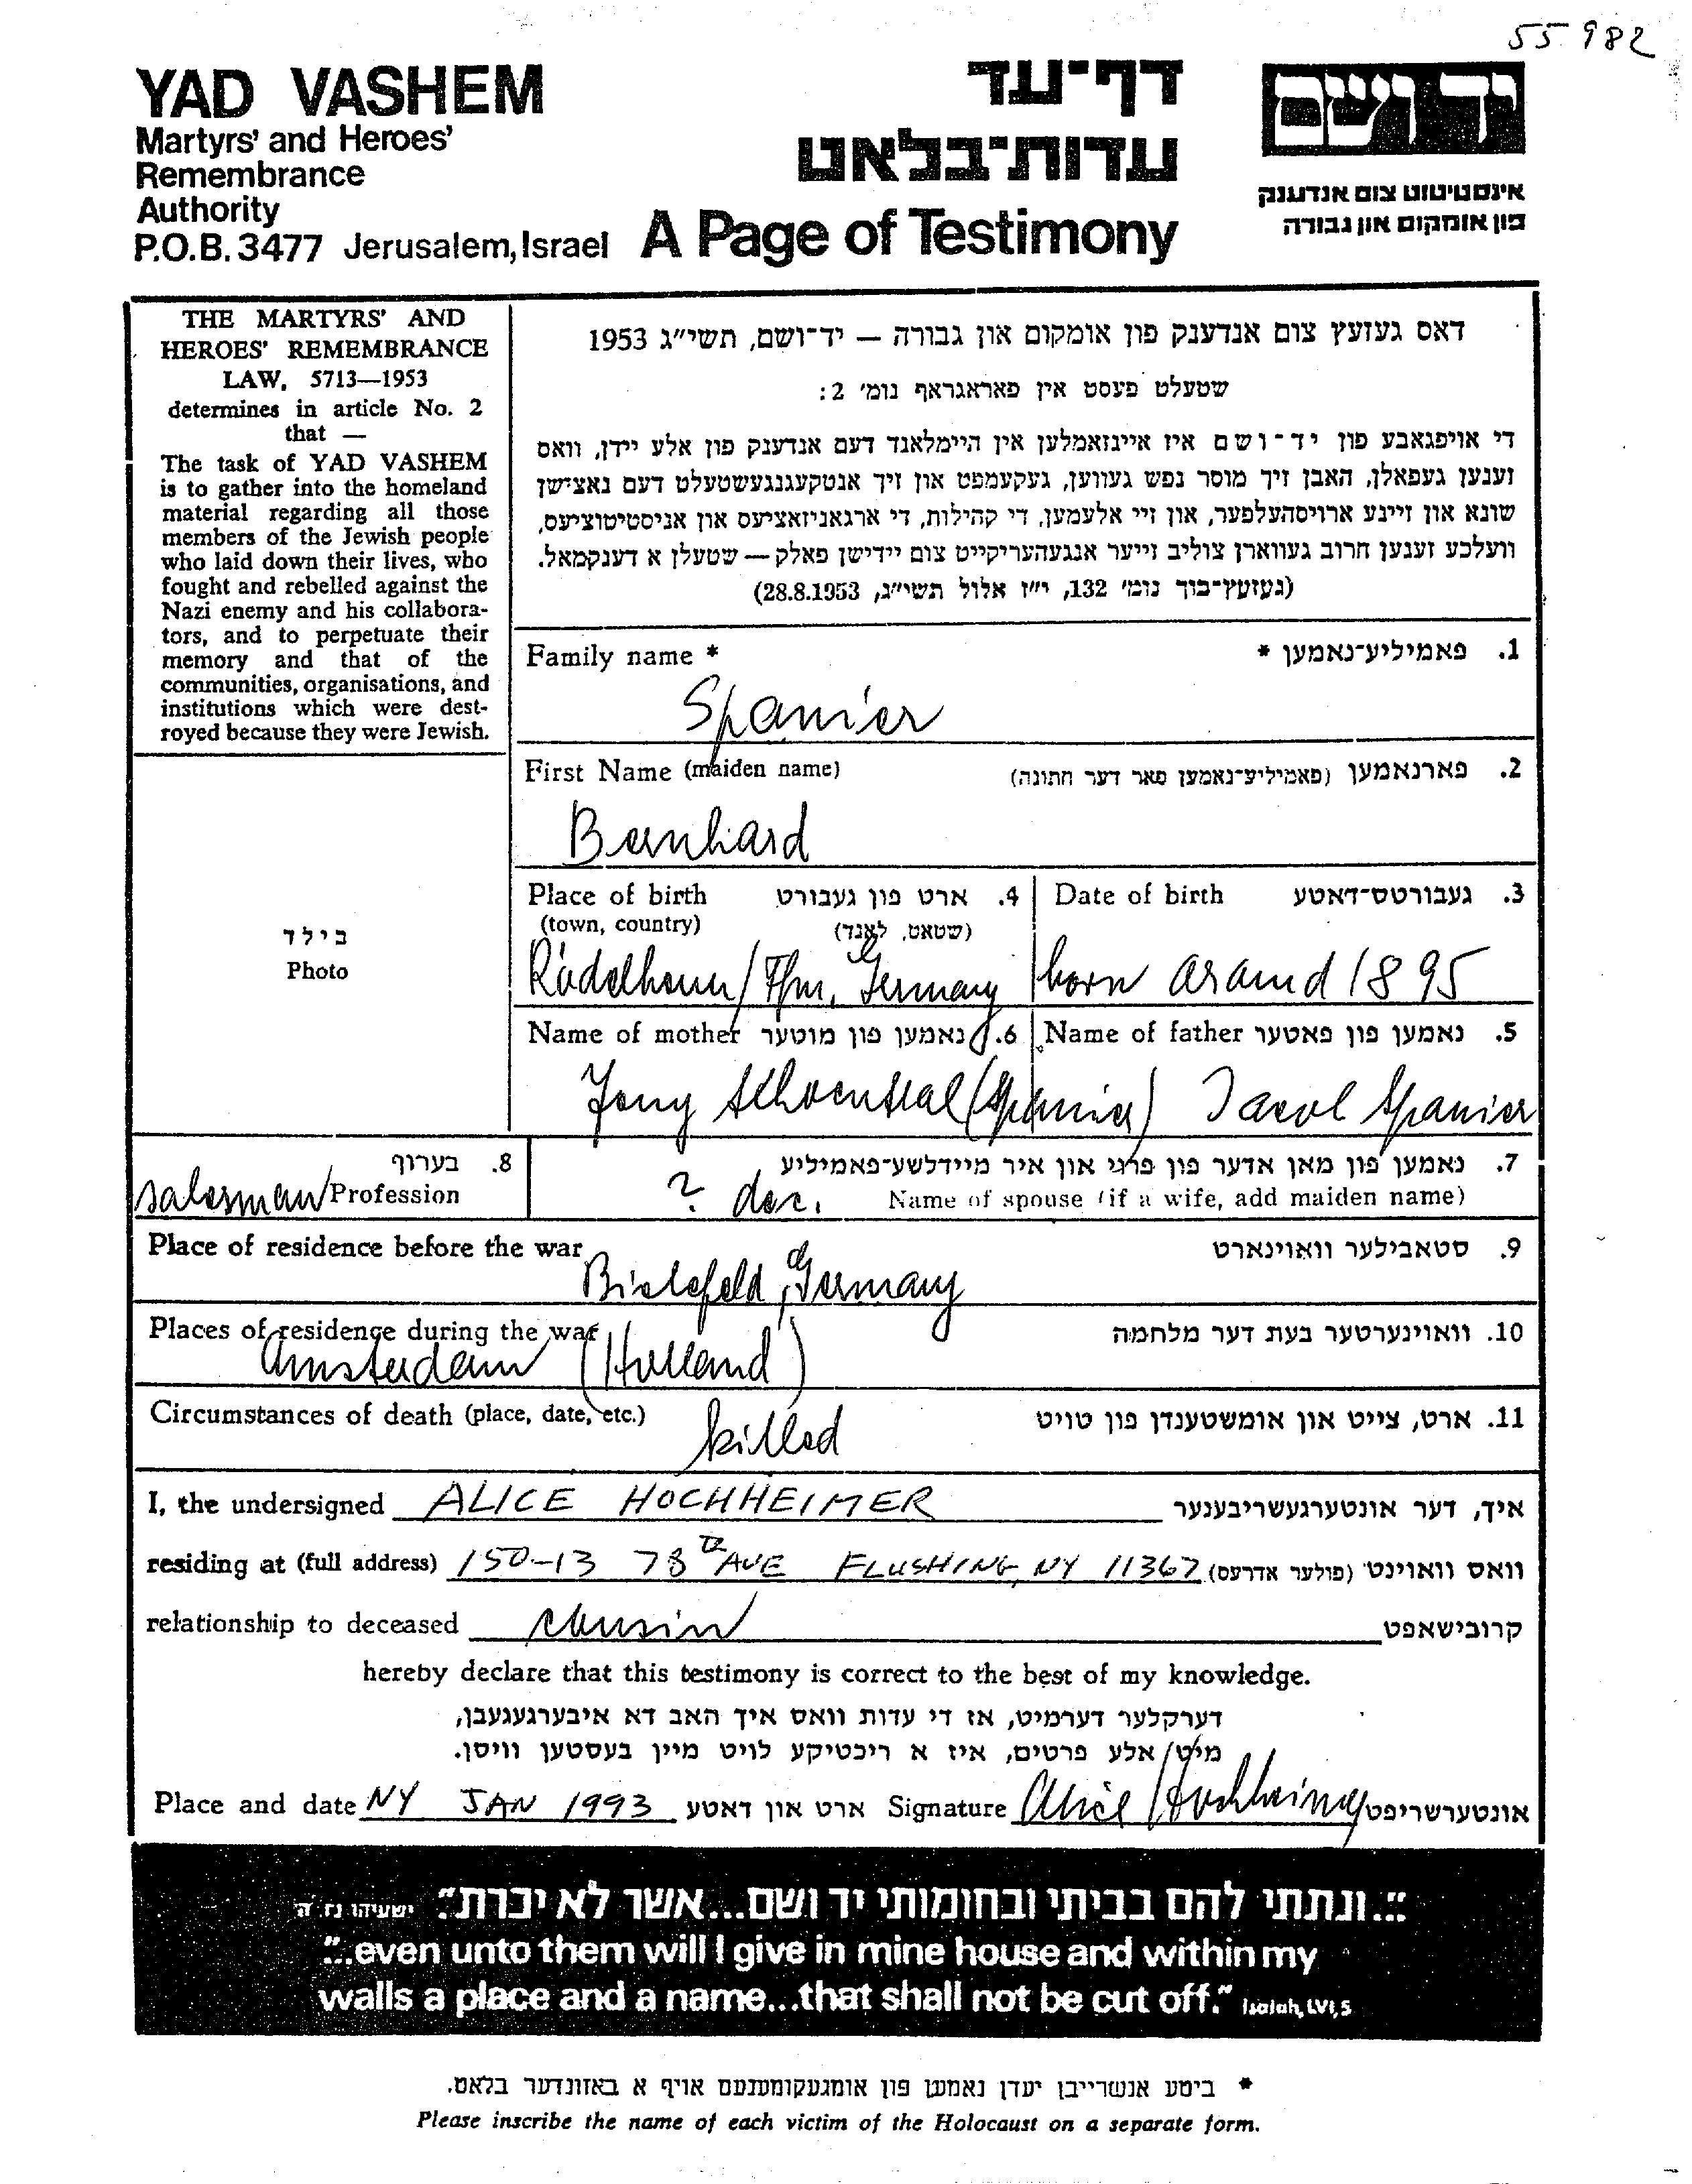 55 982
YAD VASHEM
Martyrs' and Heroes'
Remembrance
Authority
P.O.B. 3477 Jerusalem, Israel
דף־עד
עדות־בלאט
A Page of Testimony
יד ושם
אינסטיטוט צום אנדענק
פון אומקום און גבורה
THE MARTYRS' AND
HEROES' REMEMBRANCE
LAW, 5713—1953
determines in article No. 2
that —
The task of YAD VASHEM
is to gather into the homeland
material regarding all those
members of the Jewish people
who laid down their lives, who
fought and rebelled against the
Nazi enemy and his collabora-
tors, and to perpetuate their
memory and that of the
communities, organisations, and
institutions which were dest-
royed because they were Jewish.
דאס געזעץ צום אנדענק פון אומקום און גבורה — יד־ושם, תשי״ג 1953
שטעלט פעסט אין פאראגראף נומ׳ 2:
די אויפגאבע פון יד־ושם איז איינזאמלען אין היימלאנד דעם אנדענק פון אלע יידן, וואס
זענען געפאלן, האבן זיך מוסר נפש געווען, געקעמפט און זיך אנטקעגנגעשטעלט דעם נאצישן
שונא און זיינע ארויסהעלפער, און זיי אלעמען, די קהילות, די ארגאניזאציעס און אניסטיטוציעס,
וועלכע זענען חרוב געווארן צוליב זייער אנגעהעריקייט צום יידישן פאלק — שטעלן א דענקמאל.
(געזעץ־בוך נומ׳ 132, י״ז אלול תשי״ג, 28.8.1953)
Family name * 1. פאמיליע־נאמען *
Spanier
First Name (maiden name) 2. פארנאמען (פאמיליע־נאמען פאר דער חתונה)
Bernhard
בילד
Photo
Place of birth 4. ארט פון געבורט
(town, country) (שטאט, לאנד)
Date of birth 3. געבורטס־דאטע
Rödelheim/Ffm, Germany
born around 1895
Name of mother 6. נאמען פון מוטער
Name of father 5. נאמען פון פאטער
Schoental (Spanier)
Jacob Spanier
8. בערוף
salesman Profession
7. נאמען פון מאן אדער פון פרוי און איר מיידלשע־פאמיליע
? dec. Name of spouse (if a wife, add maiden name)
Place of residence before the war 9. סטאבילער וואוינארט
Bielefeld, Germany
Places of residence during the war 10. וואוינערטער בעת דער מלחמה
Amsterdam (Holland)
Circumstances of death (place, date, etc.) 11. ארט, צייט און אומשטענדן פון טויט
killed
I, the undersigned ALICE HOCHHEIMER איך, דער אונטערגעשריבענער
residing at (full address) 150-13 78th AVE FLUSHING, NY 11367 וואס וואוינט (פולער אדרעס)
relationship to deceased cousin קרובישאפט
hereby declare that this testimony is correct to the best of my knowledge.
דערקלער דערמיט, אז די עדות וואס איך האב דא איבערגעגעבן,
מיט אלע פרטים, איז א ריכטיקע לויט מיין בעסטען וויסן.
Place and date NY JAN 1993 ארט און דאטע Signature Alice Hochheimer אונטערשריפט
"...ונתתי להם בביתי ובחומותי יד ושם...אשר לא יכרת." ישעיהו נו ה
"...even unto them will I give in mine house and within my
walls a place and a name...that shall not be cut off." Isaiah, LVI, 5
* ביטע אנשרייבן יעדן נאמען פון אומגעקומענעם אויף א באזונדער בלאט.
Please inscribe the name of each victim of the Holocaust on a separate form.